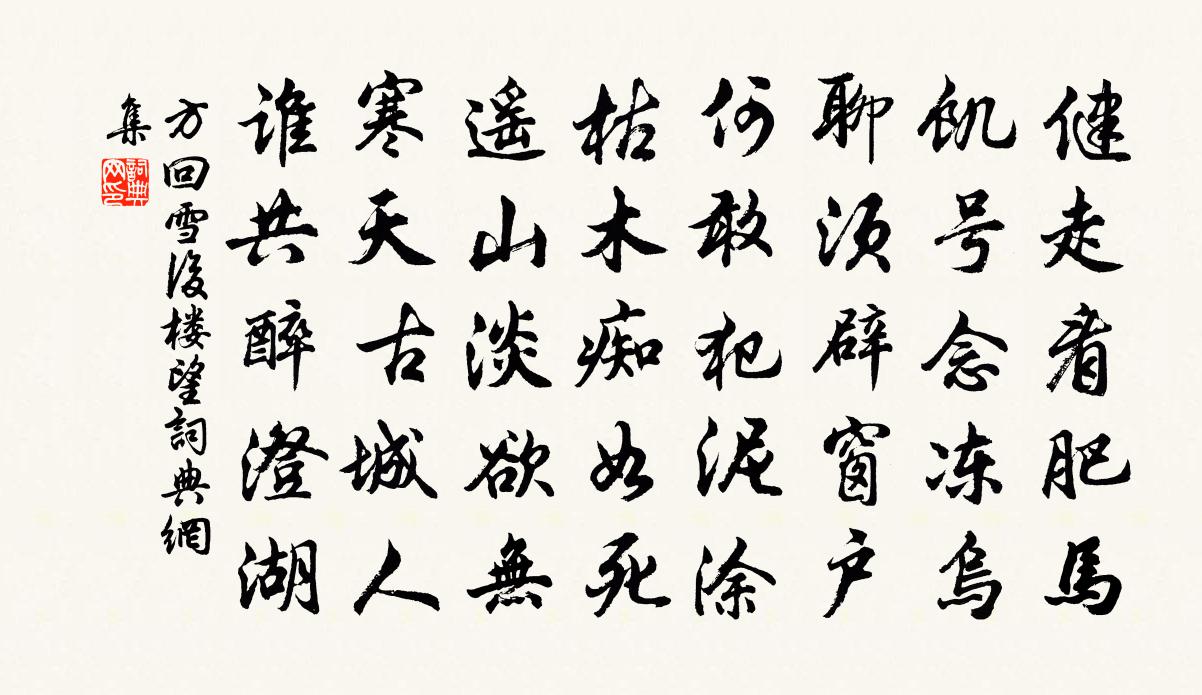 健走看肥馬
飢号念冻烏
聊须辟窗户
何敢犯泥涂
枯木痴如死
遥山淡欲無
寒天古城人
谁共醉澄湖
方回雪後楼望詞典網
集
詞典
网印